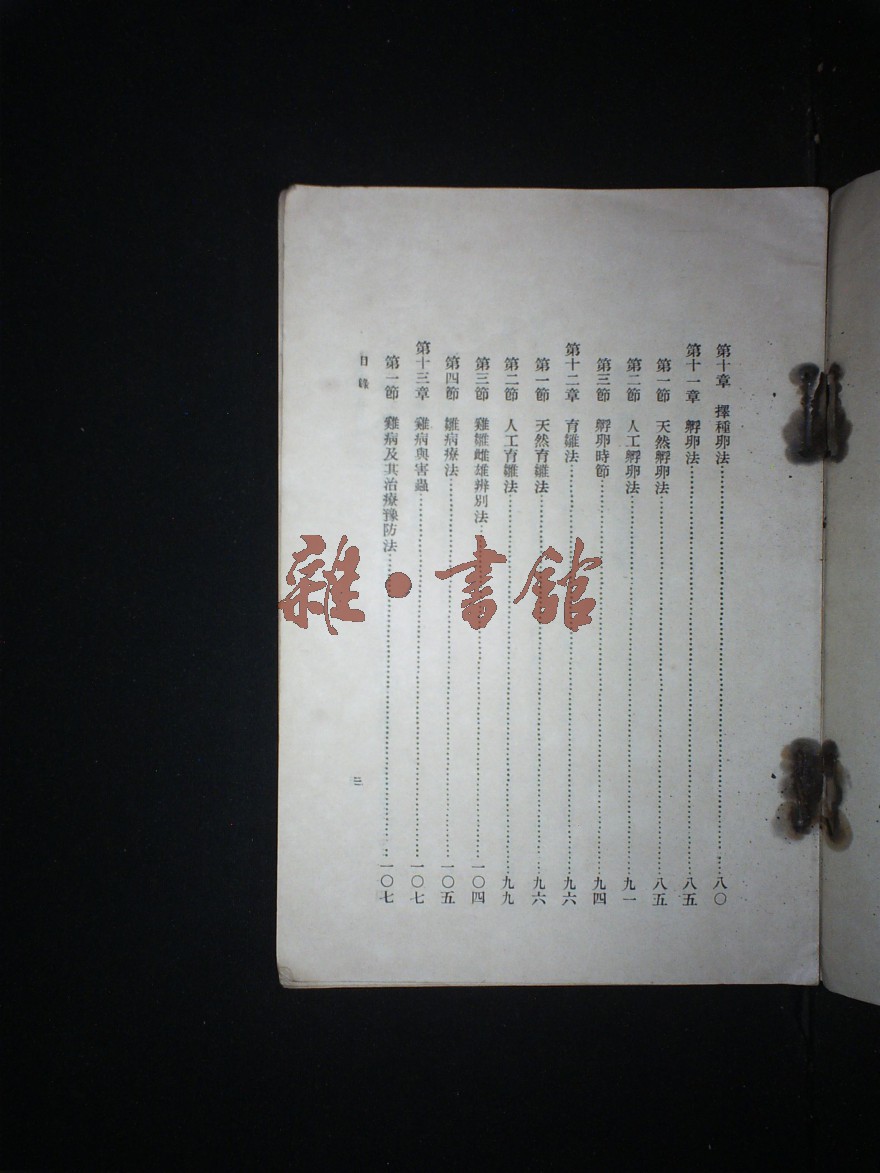 第十章　擇種卵法……八〇
第十一章　孵卵法……八五
第一節　天然孵卵法……八五
第二節　人工孵卵法……九一
第三節　孵卵時節……九四
第十二章　育雛法……九六
第一節　天然育雛法……九六
第二節　人工育雛法……九九
第三節　雞雛雌雄辨別法……一〇四
第四節　雛病療法……一〇五
第十三章　雞病與害蟲……一〇七
第一節　雞病及其治療豫防法……一〇七
目錄
三
雜•書館